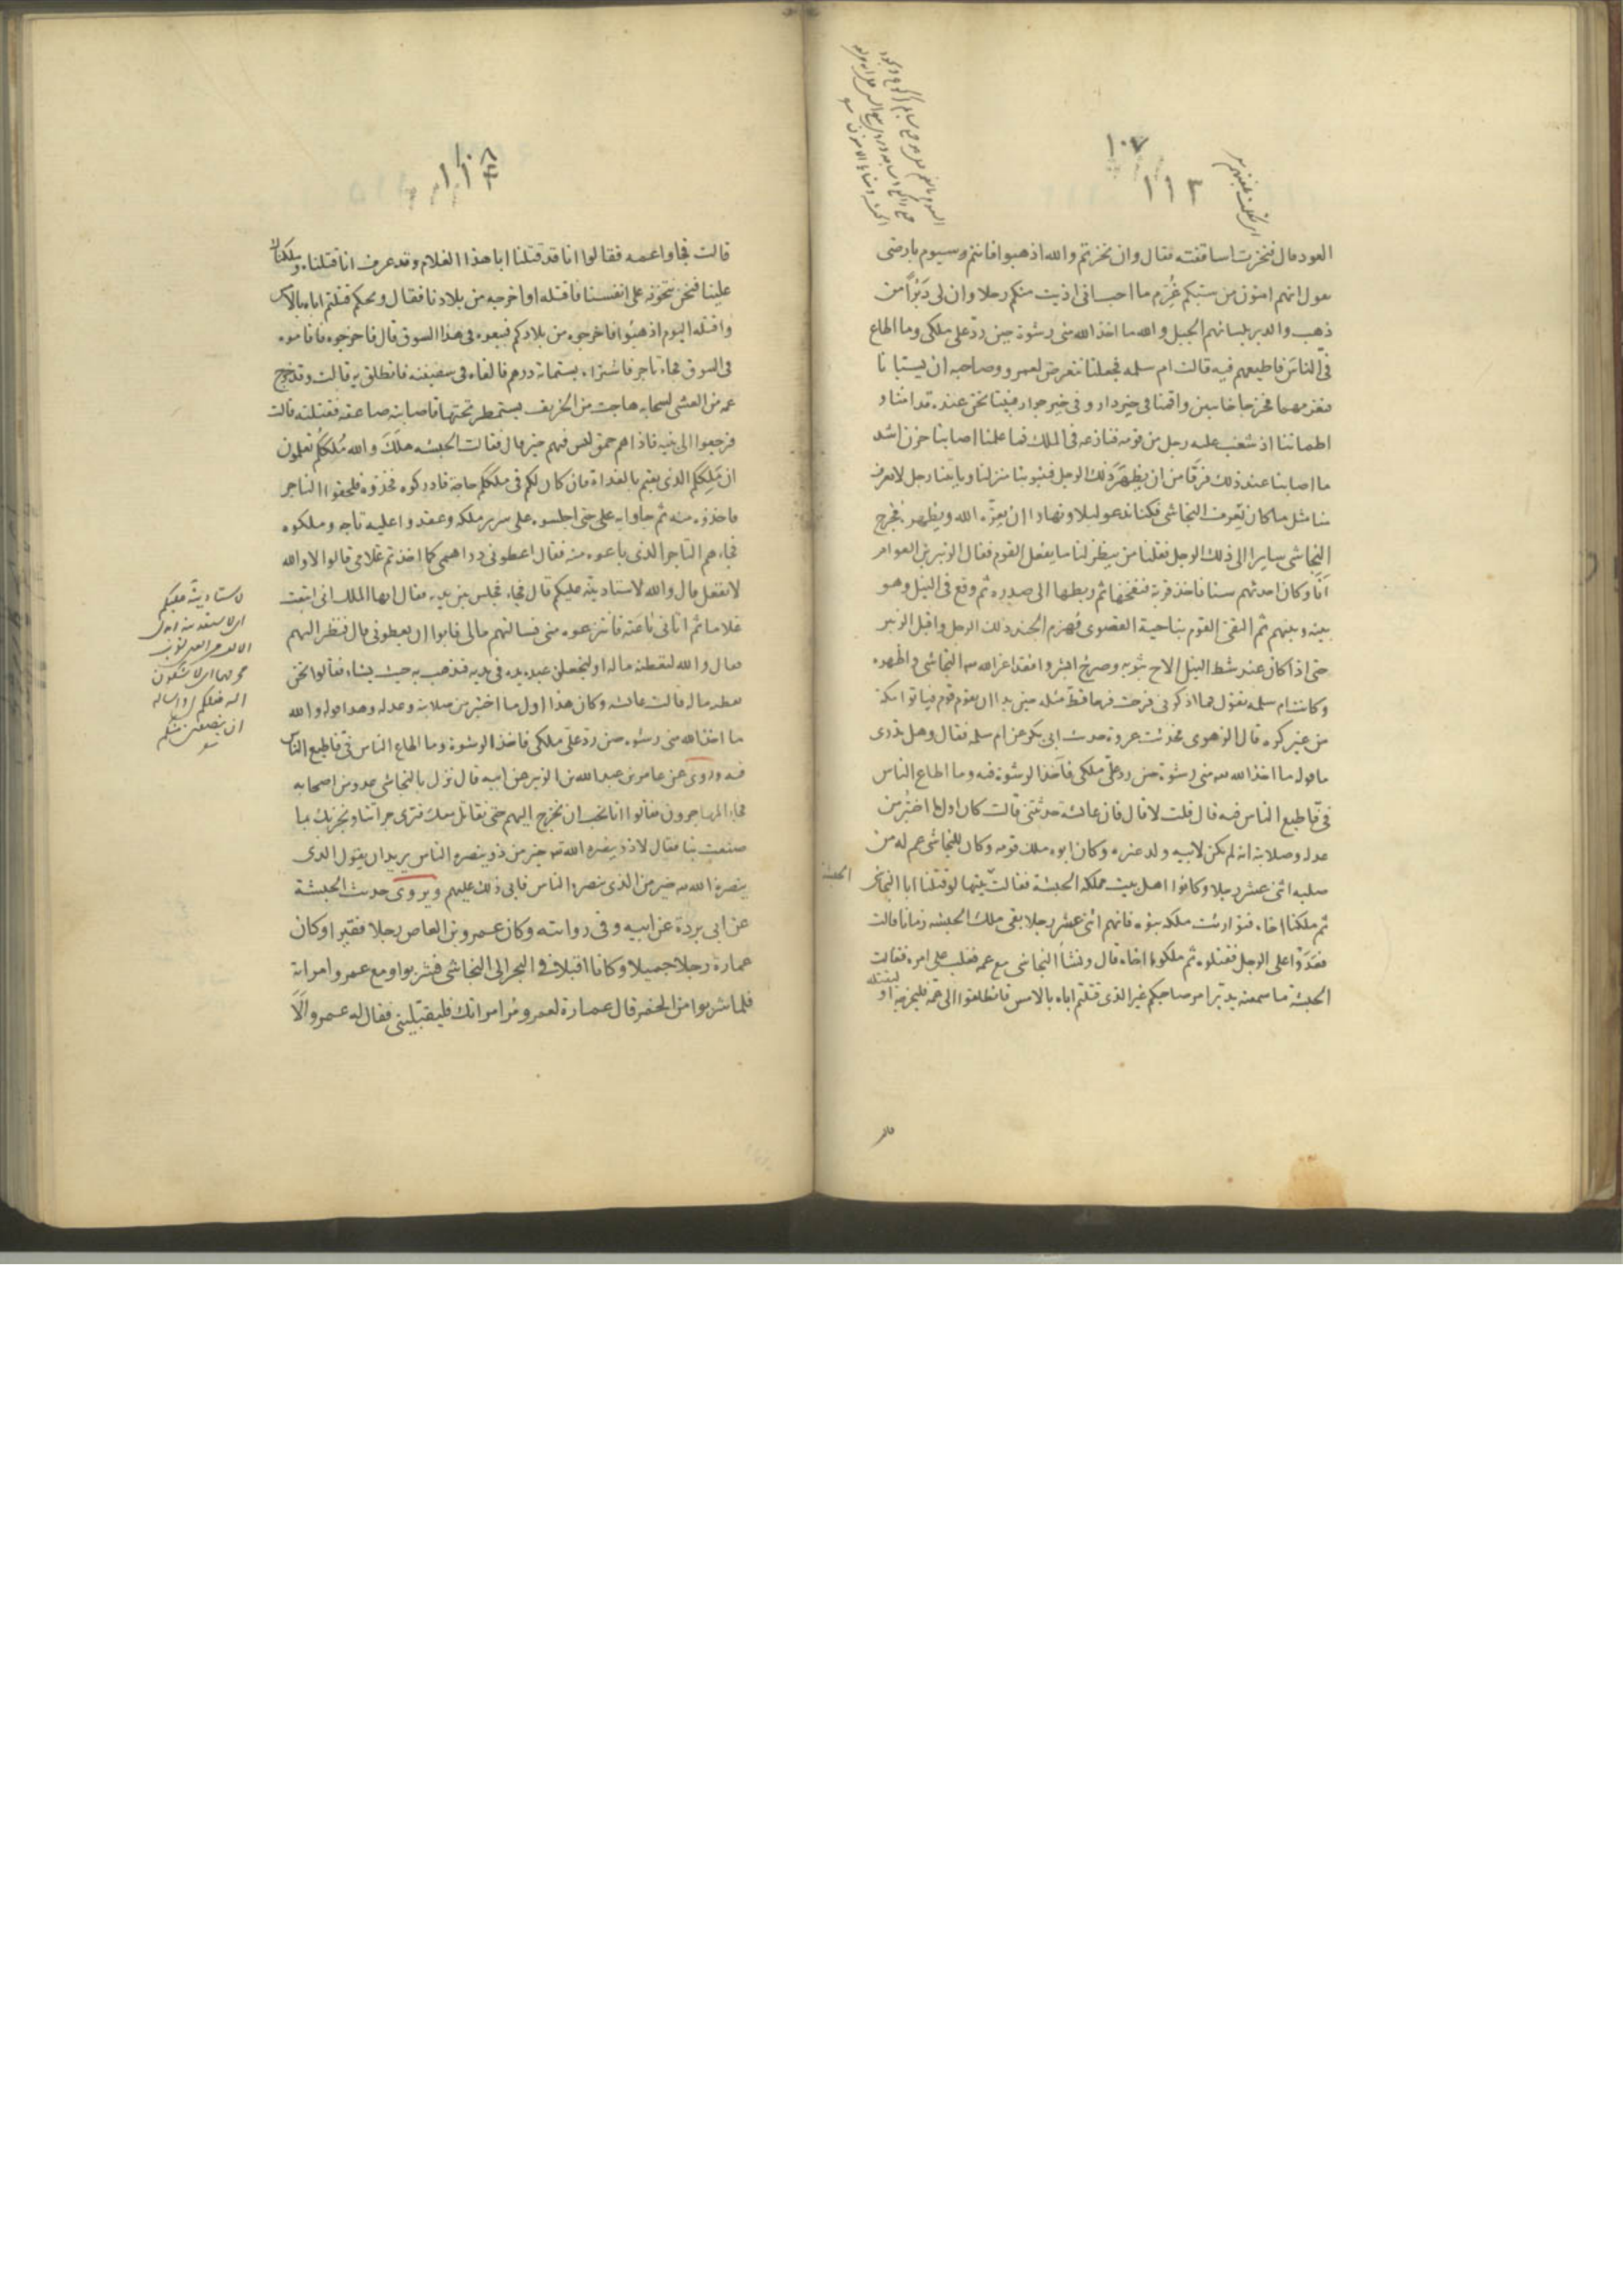 ١٠٧
١١٣
العود قال فنخرت اساقفته فقال وان نخرتم والله اذهبوا فانتم سيوم بارضى
يقول انهم امنون من سبكم غُرِّم ما احب انى اذيت منكم رجلا وان لى دَبْرًا من
ذهب والدبر بلسانهم الجبل والله ما اخذ الله منى رشوة حين ردّ على ملكى وما اطاع
فىّ الناس فاطيعهم فيه قالت ام سلمه فجعلنا نتعرض لعمرو وصاحبه ان يستبانا
فخرجا خايبين واقمنا فى خير دار وفى خير جوار فبينا نحن عنده قد امنا و
اطماننا اذ شغب عليه رجل من قومه فنازعه فى الملك فما علمنا اصابنا حزن اشد
ما اصابنا عند ذلك فرقا من ان يظهر ذلك الرجل فيتبوّا منزلنا وياتينا رجل لا يعرف
منا مثل ما كان يعرف النجاشى فكنا ندعو ليلا ونهارا ان يعزّه الله ويظهره فخرج
النجاشى سايرا الى ذلك الرجل فقلنا من ينظر لنا ما يفعل القوم فقال الزبير بن العوام
انا وكان احدثهم سنا فاخذ قربة فنفخها ثم ربطها الى صدره ثم وقع فى النيل وهو
بينه وبينهم ثم التقى القوم بناحية القصوى فهزم الجند ذلك الرجل واقبل الزبير
حتى اذا كان عند شط النيل الاح بثوبه وصرخ ابشروا فقد اعز الله النجاشى واظهره
وكانت ام سلمه تقول فما اذكرنى فرحت فرحا قط مثله حين بدا ان يقوم قوم فياتوا مكة
من غير كره قال الزهرى فحدثت عروة حديث ابى بكر عن ام سلمه فقال وهل تدرى
ما قوله ما اخذ الله منى رشوة حين ردّ علىّ ملكى فآخذ الرشوة فيه وما اطاع الناس
فىّ فاطيع الناس فيه قال قلت لا قال فان عائشة حدثتنى قالت كان اول ما اختبر من
عدله وصلابته انه لم يكن لابيه ولد غيره وكان ابوه ملك قومه وكان للنجاشى عم له من
صلبه اثنى عشر رجلا وكانوا اهل بيت مملكة الحبشة فقالت بينها لو قتلنا ابا النجاشى
الحبشة
ثم ملكنا اخاه فتوارثت ملكه بنوه فانهم اثنى عشر رجلا بقى ملك الحبشه زمانا قالت
فعَدَوْا على الرجل فقتلوه ثم ملكوا اخاه قال ونشأ النجاشى مع عمه فغلب على امره فقالت
الحبشة ما سمعنه يدبّر امر صاحبكم غير الذى قتلتم اباه بالامس فانطلقوا الى عمّه فليخرجه او
ليقتله
١٠٨
١١٤
قالت فجاوا عمه فقالوا انا قد قتلنا ابا هذا الغلام وقد عرف انا قتلناه وملكناك
علينا فنحن نتخوّفه على انفسنا فاقتله او اخرجه من بلادنا فقال ويحكم قتلتم اباه بالامس
واقتله اليوم اذهبوا فاخرجوه من بلادكم فبيعوه فى هذا السوق قال فاخرجوه فاقاموه
فى السوق فجاء تاجر فاشتراه بستمائة درهم فالقاه فى سفينته فانطلق به قالت وقد خرج
عمه من العشى لسحابه هاجت من الخريف يستمطر تحتها فاصابته صاعقه فقتلته قالت
فرجعوا الى بنيه فاذا هم حمق ليس فيهم خير قال فقالت الحبشه هلك والله مُلككُم تعلمون
ان مَلِككُم الذى بعتم بالغداة فان كان لكم فى ملككم حاجة فادركوه فخذوه فلحقوا التاجر
فاخذوه منه ثم جاوا به على حتى اجلسوه على سرير ملكه وعقدوا عليه تاجه وملكوه
فجاءهم التاجر الذى باعوه منه فقال اعطونى دراهمى كما اخذتم غلامى قالوا لا والله
لا نفعل قال والله لاستاديتّه عليكم قال فجاء فجلس بين يديه فقال ايها الملك انى ابتعت
غلاما ثم اتانى باعته فانتزعوه منى فسالتهم مالى فابوا ان يعطونى قال فنظر اليهم
فقال والله لتعطنه ماله او ليجعلن عبده يده فى يديه فيذهب به حيث يشاء فقالوا نحن
نعطه ماله قالت عائشه وكان هذا اول ما اختبر من صلابته وعدله وهذا قوله والله
ما اخذ الله منى رشوه حين ردّ علىّ ملكى فاخذ الرشوة وما اطاع الناس فىّ فاطيع الناس
فيه وروى عن عامر بن عبد الله بن الزبير عن ابيه قال نزل بالنجاشى عدو من اصحابه
فجاءه المهاجرون فقالوا انا نحب ان نخرج اليهم حتى نقاتل معك فترى جراتنا ونجزيك بما
صنعت بنا فقال لا ذو ينصره الله خير من ذو ينصره الناس يريد ان يقول الذى
ينصره الله خير من الذى ينصره الناس فابى ذلك عليهم ويروى حديث الحبشة
عن ابى بردة عن ابيه وفى روايته وكان عمرو بن العاص رجلا فقيرا وكان
عمارة رجلا جميلا وكانا اقبلا فى البحر الى النجاشى فشربوا ومع عمرو امراته
فلما شربوا من الخمر قال عمارة لعمرو مُر امراتك فليقبّلينى فقال له عمرو الَا
لاستاديته عليكم